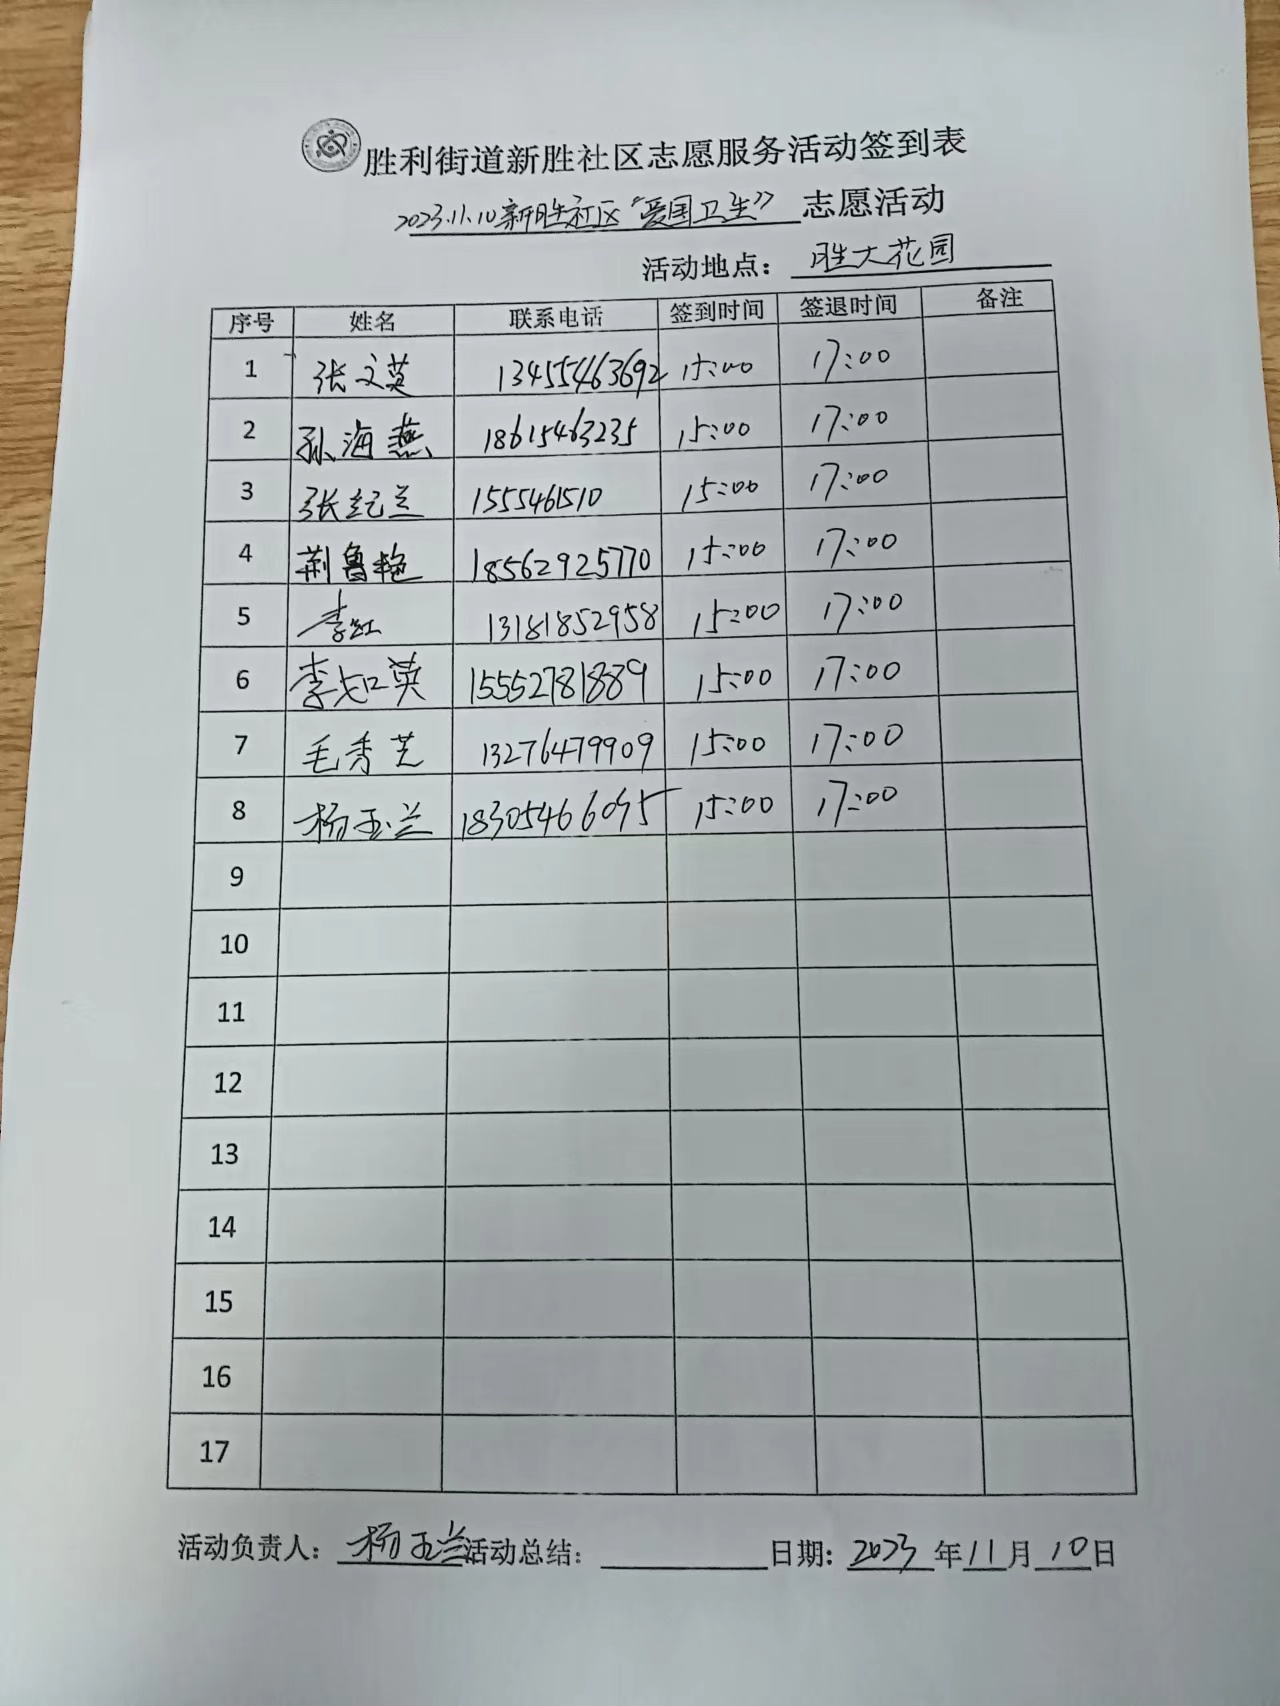 胜利街道新胜社区志愿服务活动签到表
2023.11.10新胜社区“爱国卫生”志愿活动
活动地点：胜大花园
序号 姓名 联系电话 签到时间 签退时间 备注
1 张文英 13455463692 15:00 17:00
2 孙海燕 18615463235 15:00 17:00
3 张纪兰 1555461510 15:00 17:00
4 荆鲁艳 18562925770 15:00 17:00
5 李红 13181852958 15:00 17:00
6 李如英 15552781889 15:00 17:00
7 毛秀芝 13276479909 15:00 17:00
8 杨玉兰 15:00 17:00
9
10
11
12
13
14
15
16
17
活动负责人：杨玉兰 活动总结： 日期：2023年11月10日